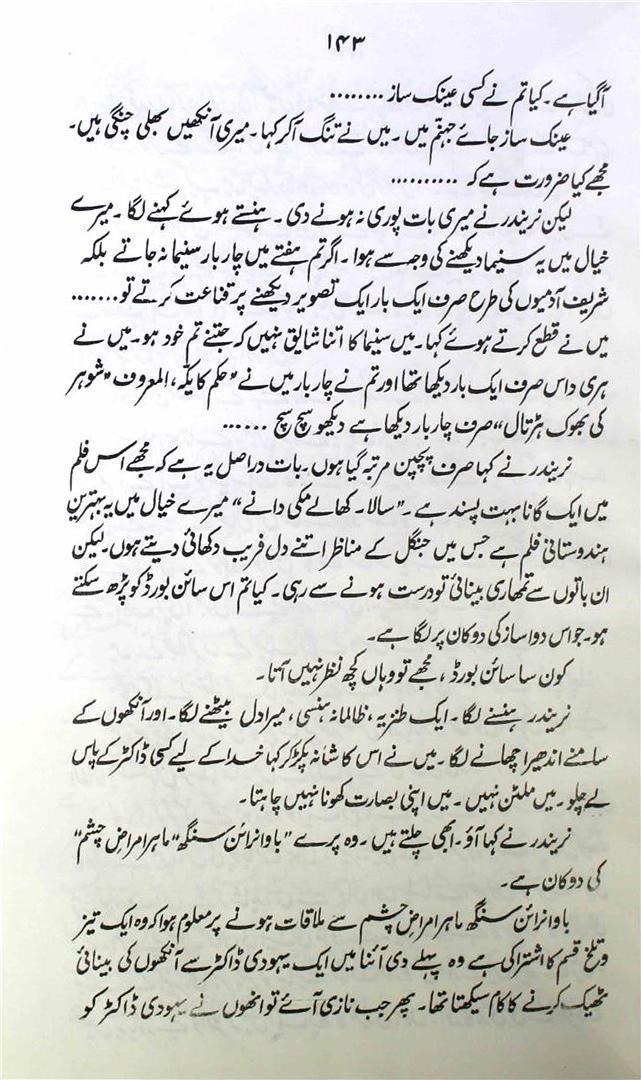 ۱۴۳
آگیا ہے۔ کیا تم نے کسی عینک ساز ........
عینک ساز جائے جہنم میں۔ میں نے تنگ آکر کہا۔ میری آنکھیں بھلی چنگی ہیں۔
مجھے کیا ضرورت ہے کہ ..........
لیکن نریندر نے میری بات پوری نہ ہونے دی۔ ہنستے ہوئے کہنے لگا۔ میرے
خیال میں یہ سنیما دیکھنے کی وجہ سے ہوا۔ اگر تم ہفتے میں چار بار سنیما نہ جاتے بلکہ
شریف آدمیوں کی طرح صرف ایک بار ایک تصویر دیکھنے پر قناعت کرتے تو.......
میں نے قطع کرتے ہوئے کہا۔ میں سنیما کا اتنا شایق نہیں کہ جتنے تم خود ہو۔ میں نے
ہری داس صرف ایک بار دیکھا تھا اور تم نے چار بار میں نے "حکم کا یکہ، المعروف "شوہر
کی بھوک ہڑتال" صرف چار بار دیکھا ہے دیکھو سچ سچ ......
نریندر نے کہا صرف پچپن مرتبہ گیا ہوں۔ بات دراصل یہ ہے کہ مجھے اس فلم
میں ایک گانا بہت پسند ہے۔ "سالا۔ کھالے مکی دانے" میرے خیال میں یہ بہترین
ہندوستانی فلم ہے جس میں جنگل کے مناظر اتنے دل فریب دکھائی دیتے ہوں۔ لیکن
ان باتوں سے تمھاری بینائی تو درست ہونے سے رہی۔ کیا تم اس سائن بورڈ کو پڑھ سکتے
ہو۔ جو اس دوا ساز کی دوکان پر لگا ہے۔
کون سا سائن بورڈ، مجھے تو وہاں کچھ نظر نہیں آتا۔
نریندر ہنسنے لگا۔ ایک طنزیہ، ظالمانہ ہنسی، میرا دل بیٹھنے لگا۔ اور آنکھوں کے
سامنے اندھیرا چھانے لگا۔ میں نے اس کا شانہ پکڑ کر کہا خدا کے لیے کسی ڈاکٹر کے پاس
لے چلو۔ میں ملٹن نہیں۔ میں اپنی بصارت کھونا نہیں چاہتا۔
نریندر نے کہا آؤ۔ ابھی چلتے ہیں۔ وہ پرے "باوا نرائن سنگھ" ماہر امراض چشم"
کی دوکان ہے۔
باوا نرائن سنگھ ماہر امراض چشم سے ملاقات ہونے پر معلوم ہوا کہ وہ ایک تیز
و تلخ قسم کا اشتراکی ہے وہ پہلے دی آئنا میں ایک یہودی ڈاکٹر سے آنکھوں کی بینائی
ٹھیک کرنے کا کام سیکھتا تھا۔ پھر جب نازی آئے تو انھوں نے یہودی ڈاکٹر کو